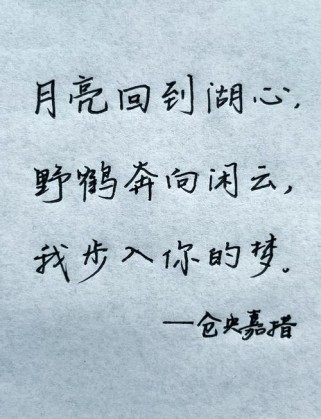 月亮回到湖心，
野鹤奔向闲云，
我步入你的梦。
—仓央嘉措